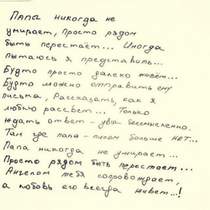 Папа никогда не
умирает, просто рядом
быть перестаёт... Иногда
пытаюсь я представить...
Будто просто далеко живёт...
Будто можно отправить ему
письма, Рассказать, как я
люблю рассвет... Только
ждать ответ - увы бессмысленно.
Там где папа - писем больше нет...
Папа никогда не умирает...
Просто рядом быть перестаёт...
Ангелом тебя сопровождает,
а любовь его всегда живёт...!